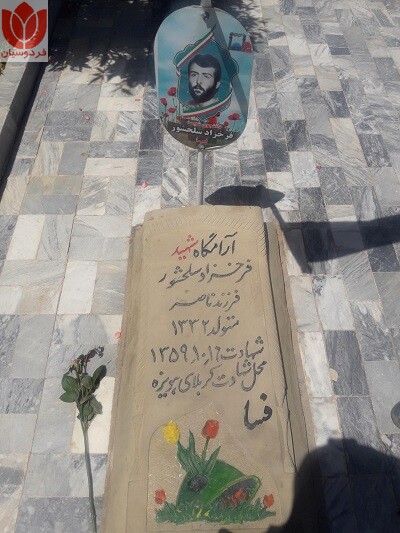 فردوسیان
فرخزاد سلحشور
آرامگاه شهید
فرخزاد سلحشور
فرزند ناصر
متولد ۱۳۳۲
شهادت ۱۳۵۹٫۱۰٫۱۶
محل شهادت کربلای هویزه
فسا